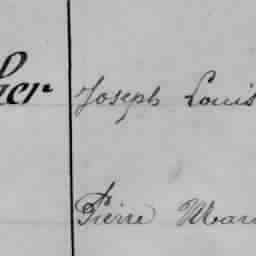 Joseph Louis
Pierre Mar